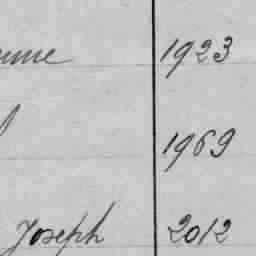 1923
1969
Joseph 2012